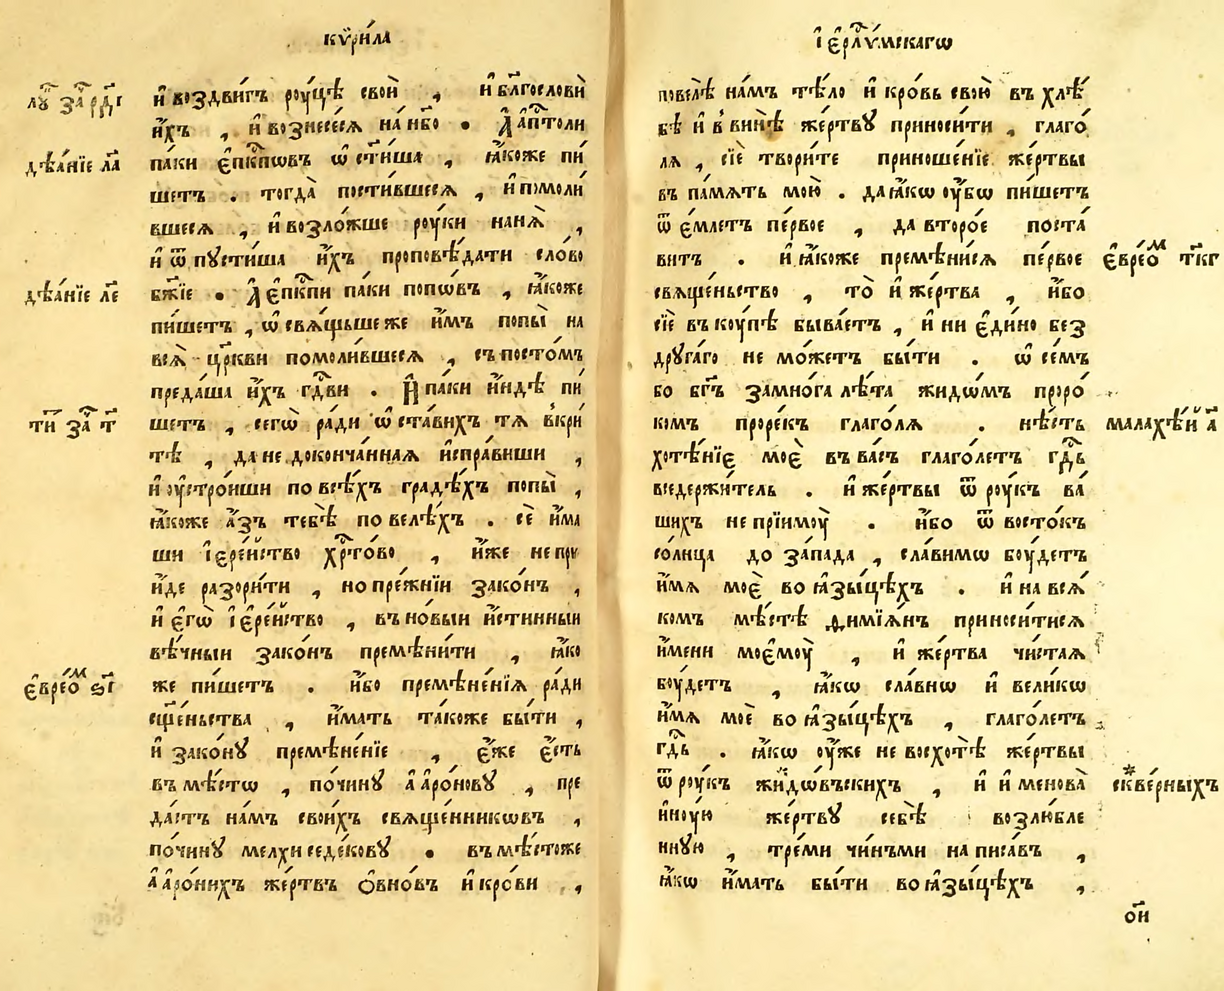 КѶ́РИ́ЛА
лꙋ҃ за҃ рд҃і
и҆ воздви́гъ роу́цѣ свои̑ , и҆ бл҃гослови̑
и҆́хъ , и҆ вознесеся на нб҃о . А҆ а҆пⷭ҇толи
дѣѧ́нїе ла
паки е҆пⷭ҇кпѡвъ ѡ҆ст҃иша , ꙗ҆́коже пи́
шетъ . тогда̀ постившеся , и҆ помоли́
вшеся , и҆ возло́жше роу́ки наня̀ ,
и҆ ѿпусти́ша и҆́хъ проповѣ́дати сло́во
дѣѧ́нїе ле
бж҃їе . А҆ е҆пⷭ҇кпи паки попѡ́въ , ꙗ҆́коже
пи́шетъ , ѡ҆свящьше же и҆́мъ попы̀ на
вся̀ цр҃кви помоли́вшеся , съ посто́мъ
преда́ша и҆́хъ гдⷭ҇ви . И҆ паки и҆́ндѣ пи́
ти҃ за҃ т҃
шетъ , сегѡ̀ ра́ди ѡ҆ста́вихъ тя в̾кри́
тѣ , да не доконча́нная и҆спра́виши ,
и҆ оу҆стро́иши по всѣ́хъ градѣ́хъ попы̀ ,
ꙗ҆́коже а҆́зъ тебѣ̀ повелѣ́хъ . сѐ и҆́ма
ши і҆ере́йство хрⷭ҇то́во , и҆́же не прі
и҆́де разори́ти , но пре́жнїи зако́нъ ,
и҆ е҆гѡ̀ і҆ере́йство , въ но́выи и҆́стинныи
вѣ́чныи зако́нъ премѣни́ти , ꙗ҆́ко
е҆вре́ѡⷨ ѕ҃і
же пи́шетъ . и҆́бо премѣне́нїя ра́ди
сщ҃е́ньства , и҆́мать та́коже бы́ти ,
и҆ зако́нꙋ премѣне́нїе , е҆́же е҆́сть
въ мѣ́стѡ , по чи́нꙋ а҆аро́новꙋ , пре
да́стъ на́мъ свои́хъ свяще́нникѡвъ ,
по чи́нꙋ мелхиседе́ковꙋ . въ мѣ́сто же
а҆аро́нихъ же́ртвъ ѻ҆вно́въ и҆ кро́ви ,
І҆ЕРⷭ҇ЛЫ́МСКАГѠ
повелѣ̀ на́мъ тѣ́ло и҆ кро́вь свою̀ въ хлѣ́
бѣ и҆ в̾ винѣ̀ же́ртвꙋ приноси́ти , глаго́
ля , сїѐ твори́те приноше́нїе же́ртвы
въ па́мять мою̀ . да ꙗ҆́кѡ оу҆́бѡ пи́шетъ
ѿе́млетъ пе́рвое , да второ́е поста́
витъ . и҆ ꙗ҆́коже премѣни́ся пе́рвое
е҆вре́ѡⷨ т҃кг
свяще́ньство , то̀ и҆ же́ртва , и҆́бо
сїѐ въ коу́пѣ быва́етъ , и҆ ни е҆ди́но без
друга́го не мо́жетъ бы́ти . ѡ҆ се́мъ
бо бг҃ъ за мно́га лѣ́та жидѡ́мъ проро́
комъ проре́къ глаго́ля . нѣ́сть
малахѣ́и а҃
хотѣ́нїе моѐ въ ва́съ глаго́летъ гдⷭ҇ь
вседержи́тель . и҆ же́ртвы ѿ роу́къ ва́
шихъ не прїимоу̀ . и҆́бо ѿ восто́къ
со́лнца до за́пада , сла́вимѡ боу́детъ
и҆́мя моѐ во ꙗ҆зы́цѣхъ . и҆ на вся́
комъ мѣ́стѣ ѳимїя́нъ приноси́тися
и҆́мени моемоу̀ , и҆ же́ртва чи́стая
боу́детъ , ꙗ҆́кѡ сла́внѡ и҆ вели́кѡ
и҆́мя моѐ во ꙗ҆зы́цѣхъ , глаго́летъ
гдⷭ҇ь . ꙗ҆́кѡ оу҆́же не восхотѣ̀ же́ртвы
ѿ роу́къ жидѡ́въскихъ , и҆ и҆менова̀
скве́рныхъ
и҆ноую же́ртвꙋ себѣ̀ возлю́бле
ннꙋю , треми́ чи́нъми написа́въ ,
ꙗ҆́кѡ и҆́мать бы́ти во ꙗ҆зы́цѣхъ ,
он҃